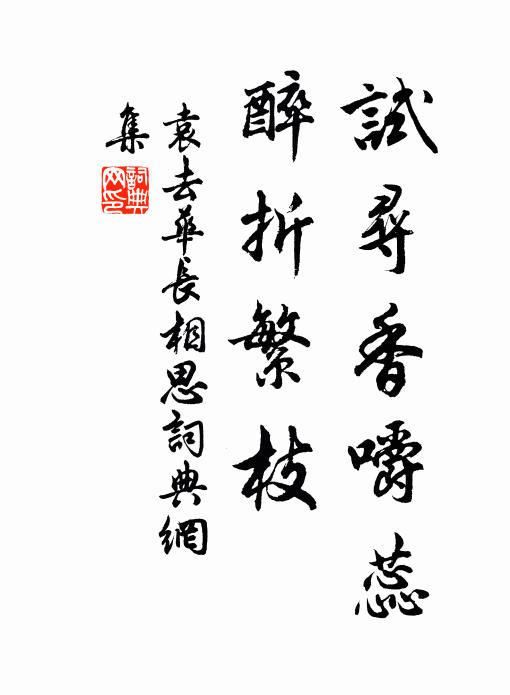 試尋香嚼蕊
醉折繁枝
袁去華長相思詞典網
集
詞典網印